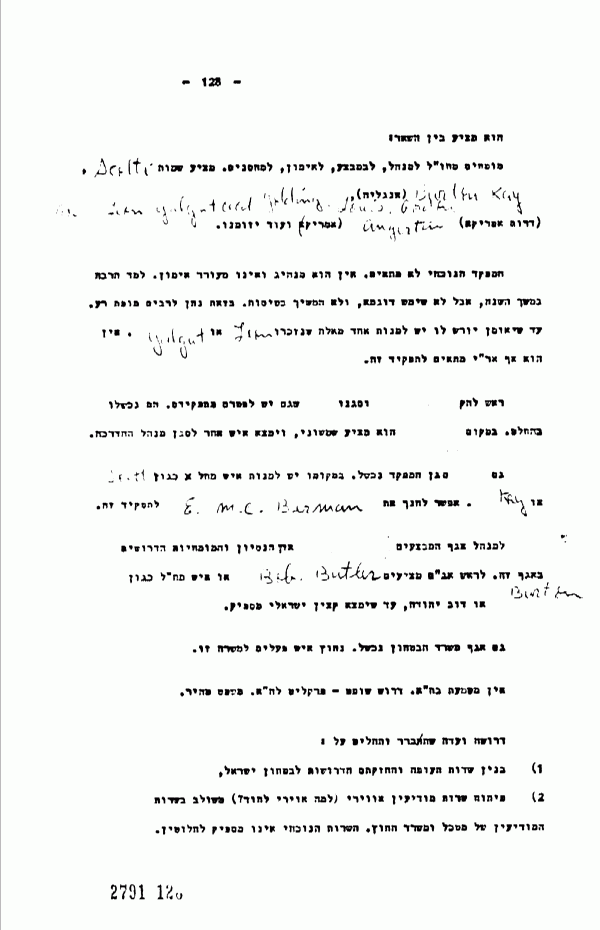 - 128 -
הוא מציע בין השאר:
מומחים מחו"ל למנהל, למבצע, לאימון, למחסנים. מציע שמות
(אנגליה), Kay
(דרום אפריקה) (אמריקה) ועוד יוזמנו.
המפקד הנוכחי לא מתאים. אין הוא מנהיג ואינו מעורר אימון. למד הרבה
במשך השנה, אבל לא שימש דוגמא, ולא המשיך בטיסות. בזאת נתן לרבים מופת רע.
עד שיאומן יורש לו יש למנות אחד מאלה שנזכרו או . אין
הוא אף אר"י מתאים לתפקיד זה.
ראש להק וסגנו שגם יש לפטרם מתפקידם. הם נכשלו
בהחלט. במקום הוא מציע שמשוני, וימצא איש אחר לסגן מנהל ההדרכה.
גם סגן המפקד נכשל. במקומו יש למנות איש מחל א כגון
או Kay . אפשר לחנך את E. M.C. Berman לתפקיד זה.
למנהל אגף המבצעים אין הנסיון והמומחיות הדרושים
באגף זה. לראש אג"ם מציעים Butler או איש מח"ל כגון
או דוב יהודה, עד שימצא קצין ישראלי מספיק.
גם אגף משרד הבטחון נכשל. נחוץ איש פעלים למשרה זו.
אין משמעת בח"א. דרוש שופט - פרקליט לח"א. משפט מהיר.
דרושה ועדה שתברר ותחליט על :
1) בנין שדות תעופה והחזקתם הדרושות לבטחון ישראל,
2) פיתוח שרות מודיעין אווירי (למה אוירי לחוד?) משולב בשרות
המודיעין של מטכל ומשרד החוץ. השרות הנוכחי אינו מספיק לחלוטין.
2791